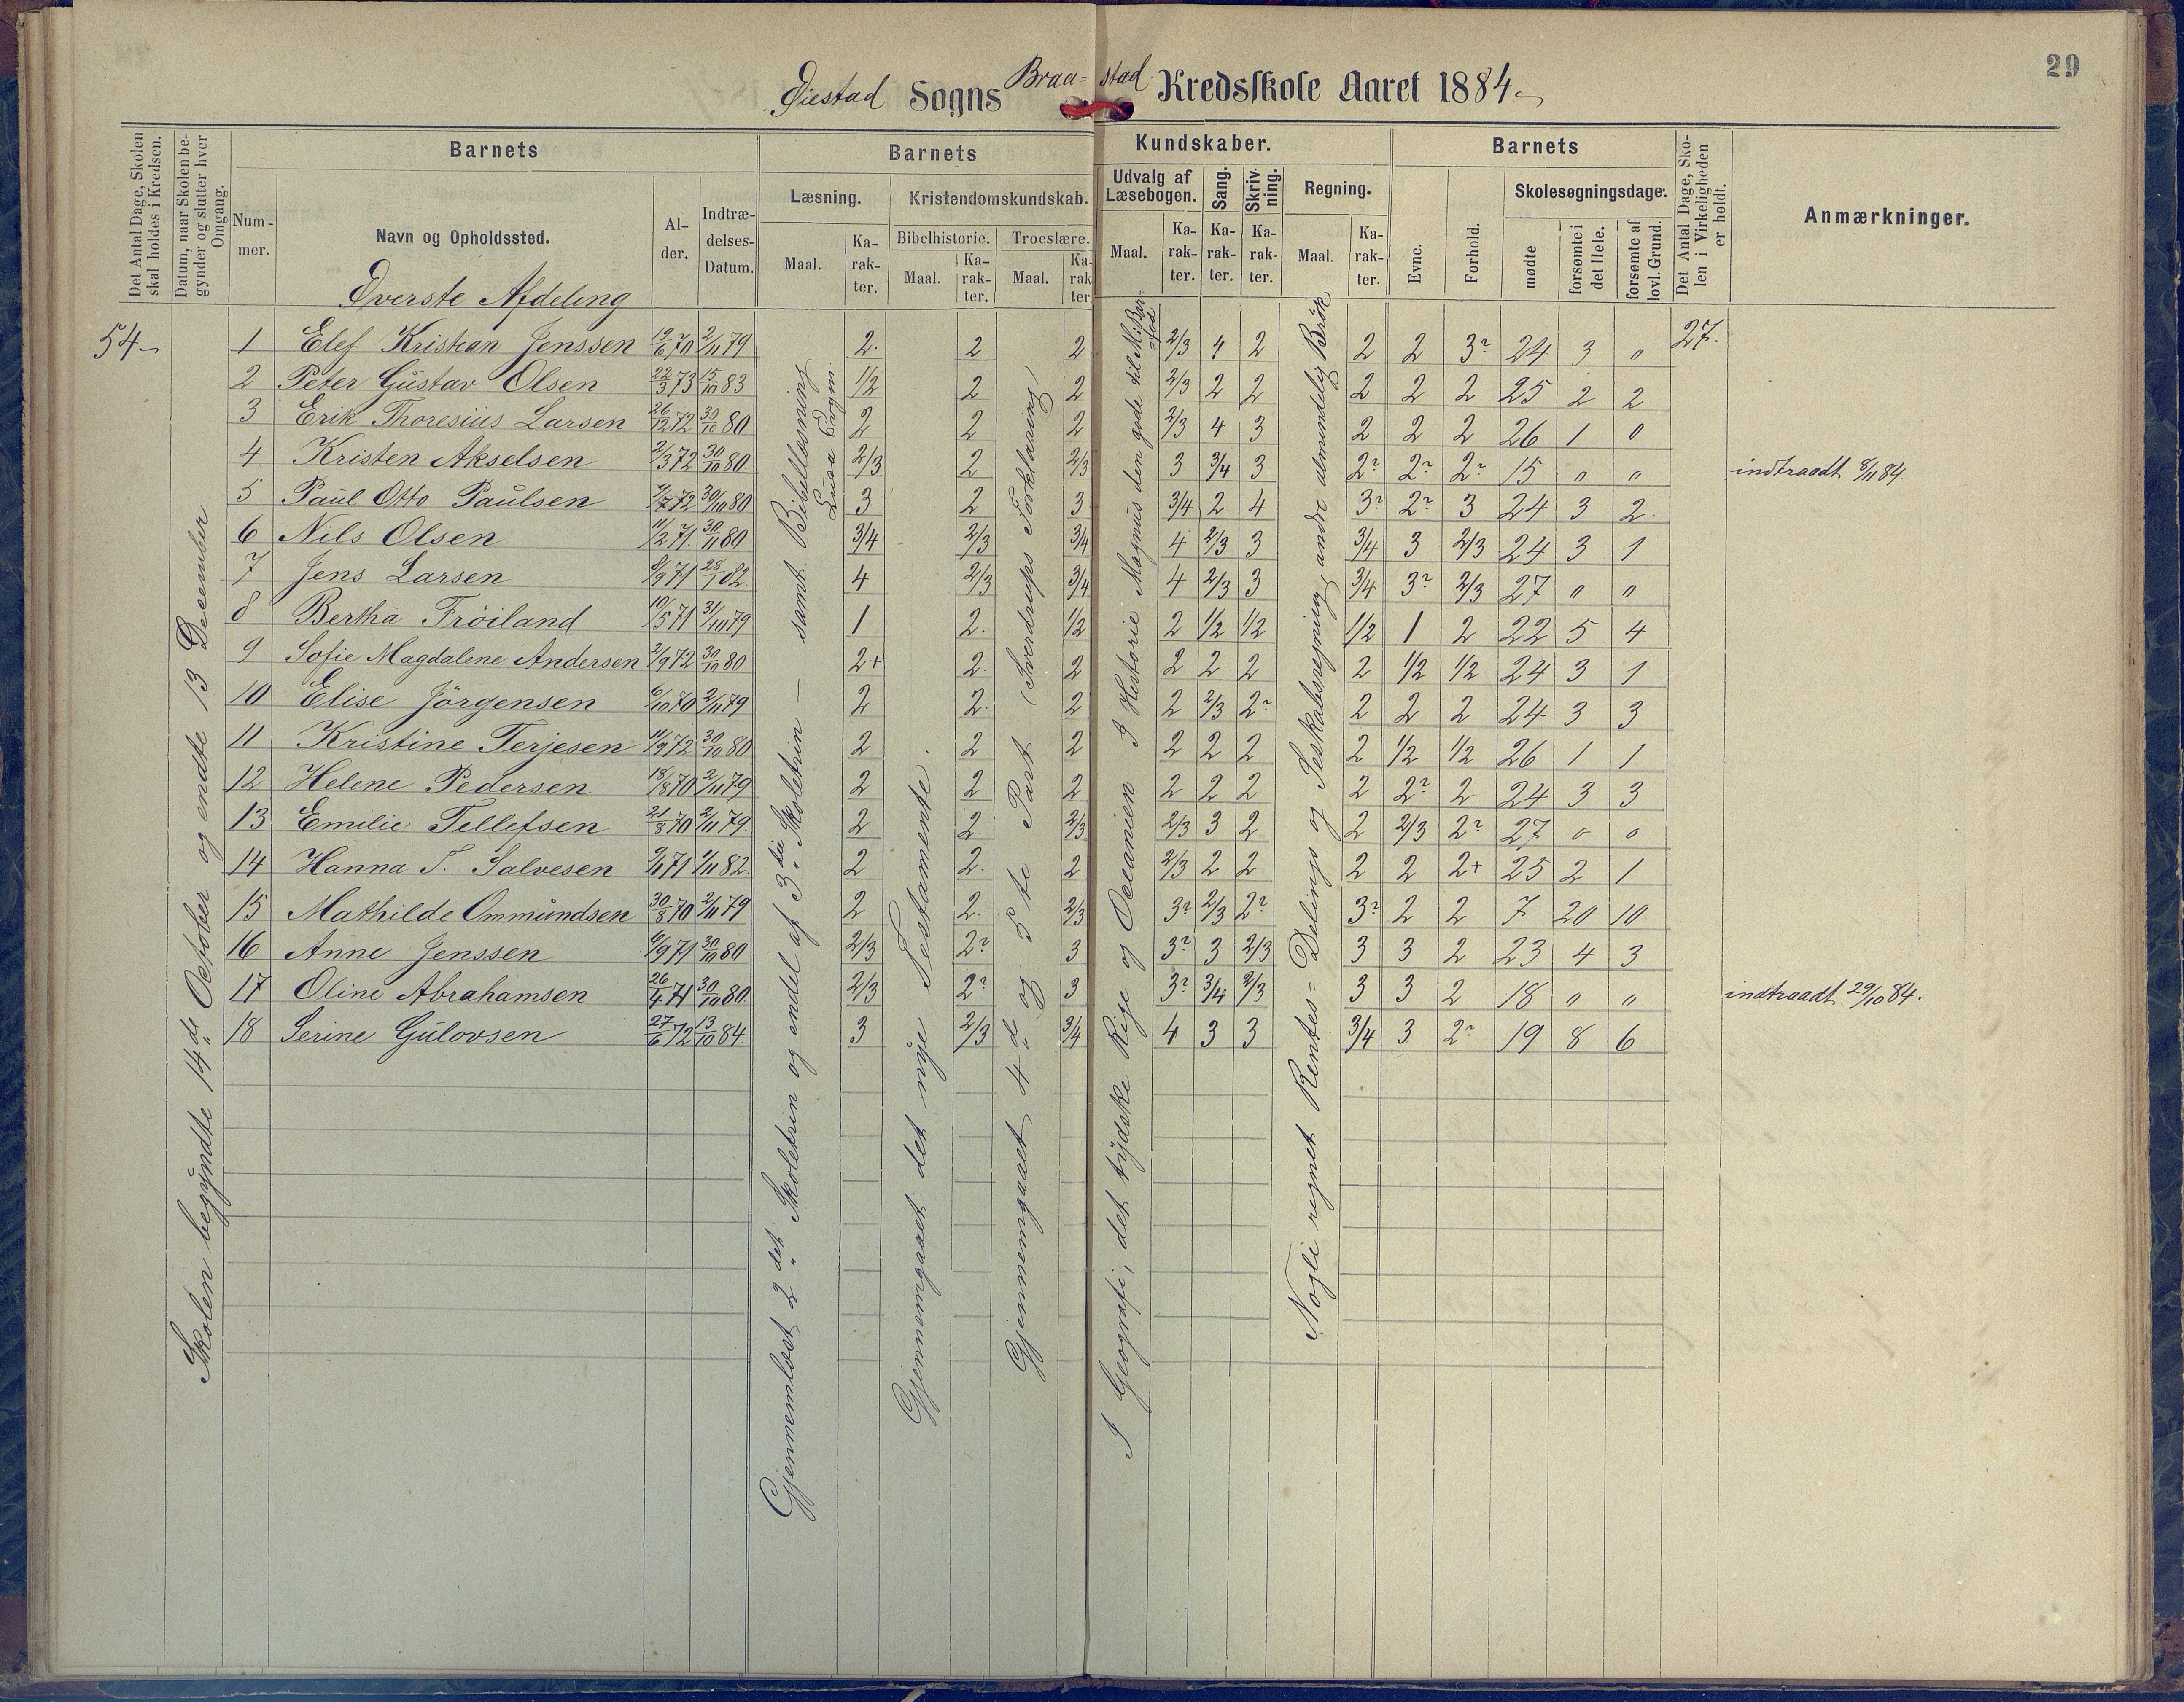 29
Øiestad Sogns Braa=stad Kredsskole Aaret 1884
Det Antal Dage, Skolen skal holdes i Kredsen.
Datum, naar Skolen begynder og slutter hver Omgang.
Barnets
Nummer.
Navn og Opholdssted.
Alder.
Indtrædelses-Datum.
Barnets
Kundskaber.
Læsning.
Maal.
Karakter.
Kristendomskundskab.
Bibelhistorie.
Maal.
Karakter.
Troeslære.
Maal.
Karakter.
Udvalg af Læsebogen.
Maal.
Karakter.
Sang.
Karakter.
Skrivning.
Karakter.
Regning.
Maal.
Karakter.
Barnets
Evne.
Forhold.
Skolesøgningsdage.
mødte
forsømte i det Hele.
forsømte af lovl. Grund.
Det Antal Dage, Skolen i Virkeligheden er holdt.
Anmærkninger.
Øverste Afdeling
54
27.
Skolen begyndte 14de October og endte 13 December
Gjennemlæst 2det Skoletrin og endel af 3die Skoletrin samt Bibellæsning
Gjennemgaaet det nye Testamente.
Gjennemgaaet 4de og 5te Part (Sverdrups Forklaring)
I Geografi, det tydske Rige og Oceanien I Historie Magnus den gode til M. Bar=fod
Nogle regnet Rentes= Delings og Seskabsregning, andre almindelig Brøk
1 Elef Kristian Jenssen 19/6 70 2/11 79. 2. 2 2 2/3 4 2 2 2 3? 24 3 0
2 Peter Gustav Olsen 22/3 73 15/10 83 1/2 2 2 2/3 2 2 2 2 2 25 2 2
3 Erik Thoresius Larsen 26/12 72 30/10 80 2 2 2 2/3 4 3 2 2 2 26 1 0
4 Kristen Akselsen 2/3 72 30/10 80. 2/3 2 2/3 3 3/4 3 2? 2? 2? 15 0 0 indtraadt 8/11 84.
5 Paul Otto Paulsen 9/7 72 30/10 80 3 2 3 3/4 2 4 3? 2? 3 24 3 2
6 Nils Olsen 11/2 71. 30/11 80 3/4 2/3 3/4 4 2/3 3 3/4 3 2/3 24 3 1
7 Jens Larsen 8/9 71 28/1 82. 4 2/3 3/4 4 2/3 3 3/4 3? 2/3 27 0 0
8 Bertha Frøiland 10/5 71 31/10 79 1 2. 1/2 2 1/2 1/2 1/2 1 2 22 5 4
9 Sofie Magdalene Andersen 2/9 72 30/10 80 2+ 2. 2 2 2 2 2 1/2 1/2 24 3 1
10 Elise Jörgensen 6/10 70 2/11 79 2 2. 2 2 2/3 2? 2 2 2 24 3 3
11 Kristine Terjesen 11/9 72 30/10 80 2 2 2 2 2 2 2 1/2 1/2 26 1 1
12 Helene Pedersen 18/8 70 2/11 79 2 2 2 2 2 2 2 2? 2 24 3 3
13 Emilie Tellefsen 21/8 70 2/11 79. 2 2. 2/3 2/3 3 2 2 2/3 2? 27 0 0
14 Hanna T. Salvesen 9/6 71 1/11 82. 2 2. 2 2/3 2 2 2 2 2+ 25 2 1
15 Mathilde Ommundsen 30/8 70 2/11 79 2 2. 2/3 3? 2/3 2? 3? 2 2 7 20 10
16 Anne Jenssen 6/9 71 30/10 80 2/3 2? 3 3? 3 2/3 3 3 2 23 4 3
17 Oline Abrahamsen 26/4 71 30/10 80. 2/3 2? 3 3? 3/4 2/3 3 3 2 18 0 0 indtraadt 29/10 84.
18 Serine Gulovsen 27/6 72 13/10 84. 3 2/3 3/4 4 3 3 3/4 3 2? 19 8 6